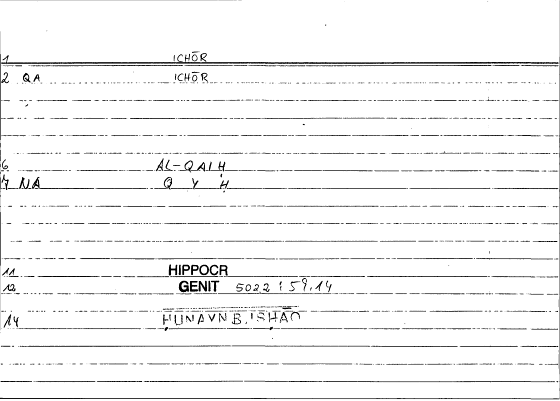 1 ICHŌR
2 QA ICHŌR
6 AL-QAIḤ
7 NA Q Y Ḥ
11 HIPPOCR
12 GENIT 5022 : 59.14
14 ḤUNAYN B. ISḤAQ